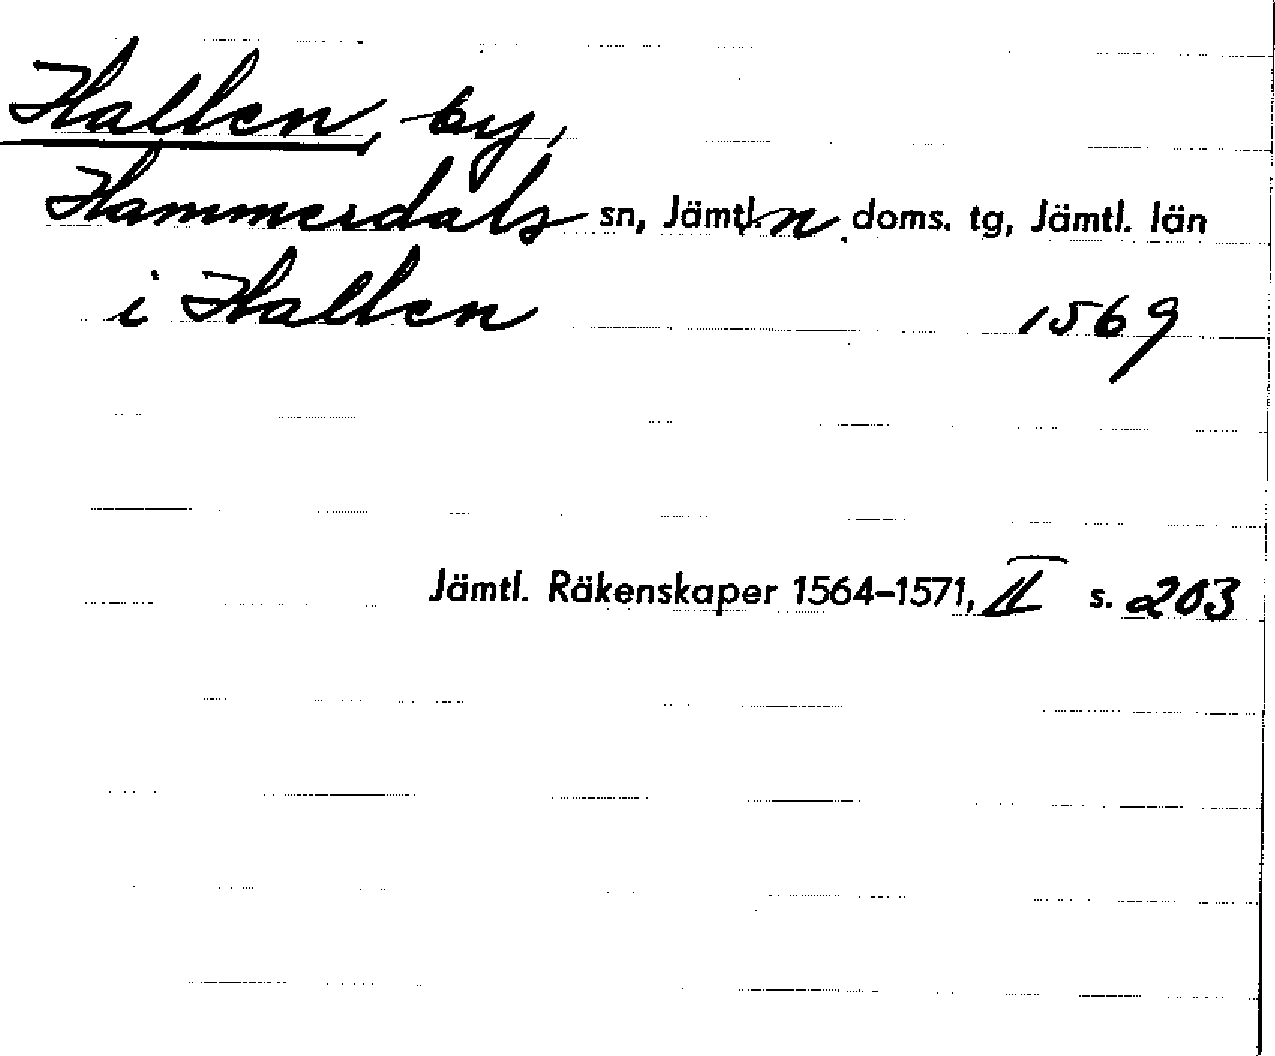 Hallen, by,
Hammerdals sn, Jämtl. n doms. tg, Jämtl. län
i Hallen 1569
Jämtl. Räkenskaper 1564–1571, II s. 203